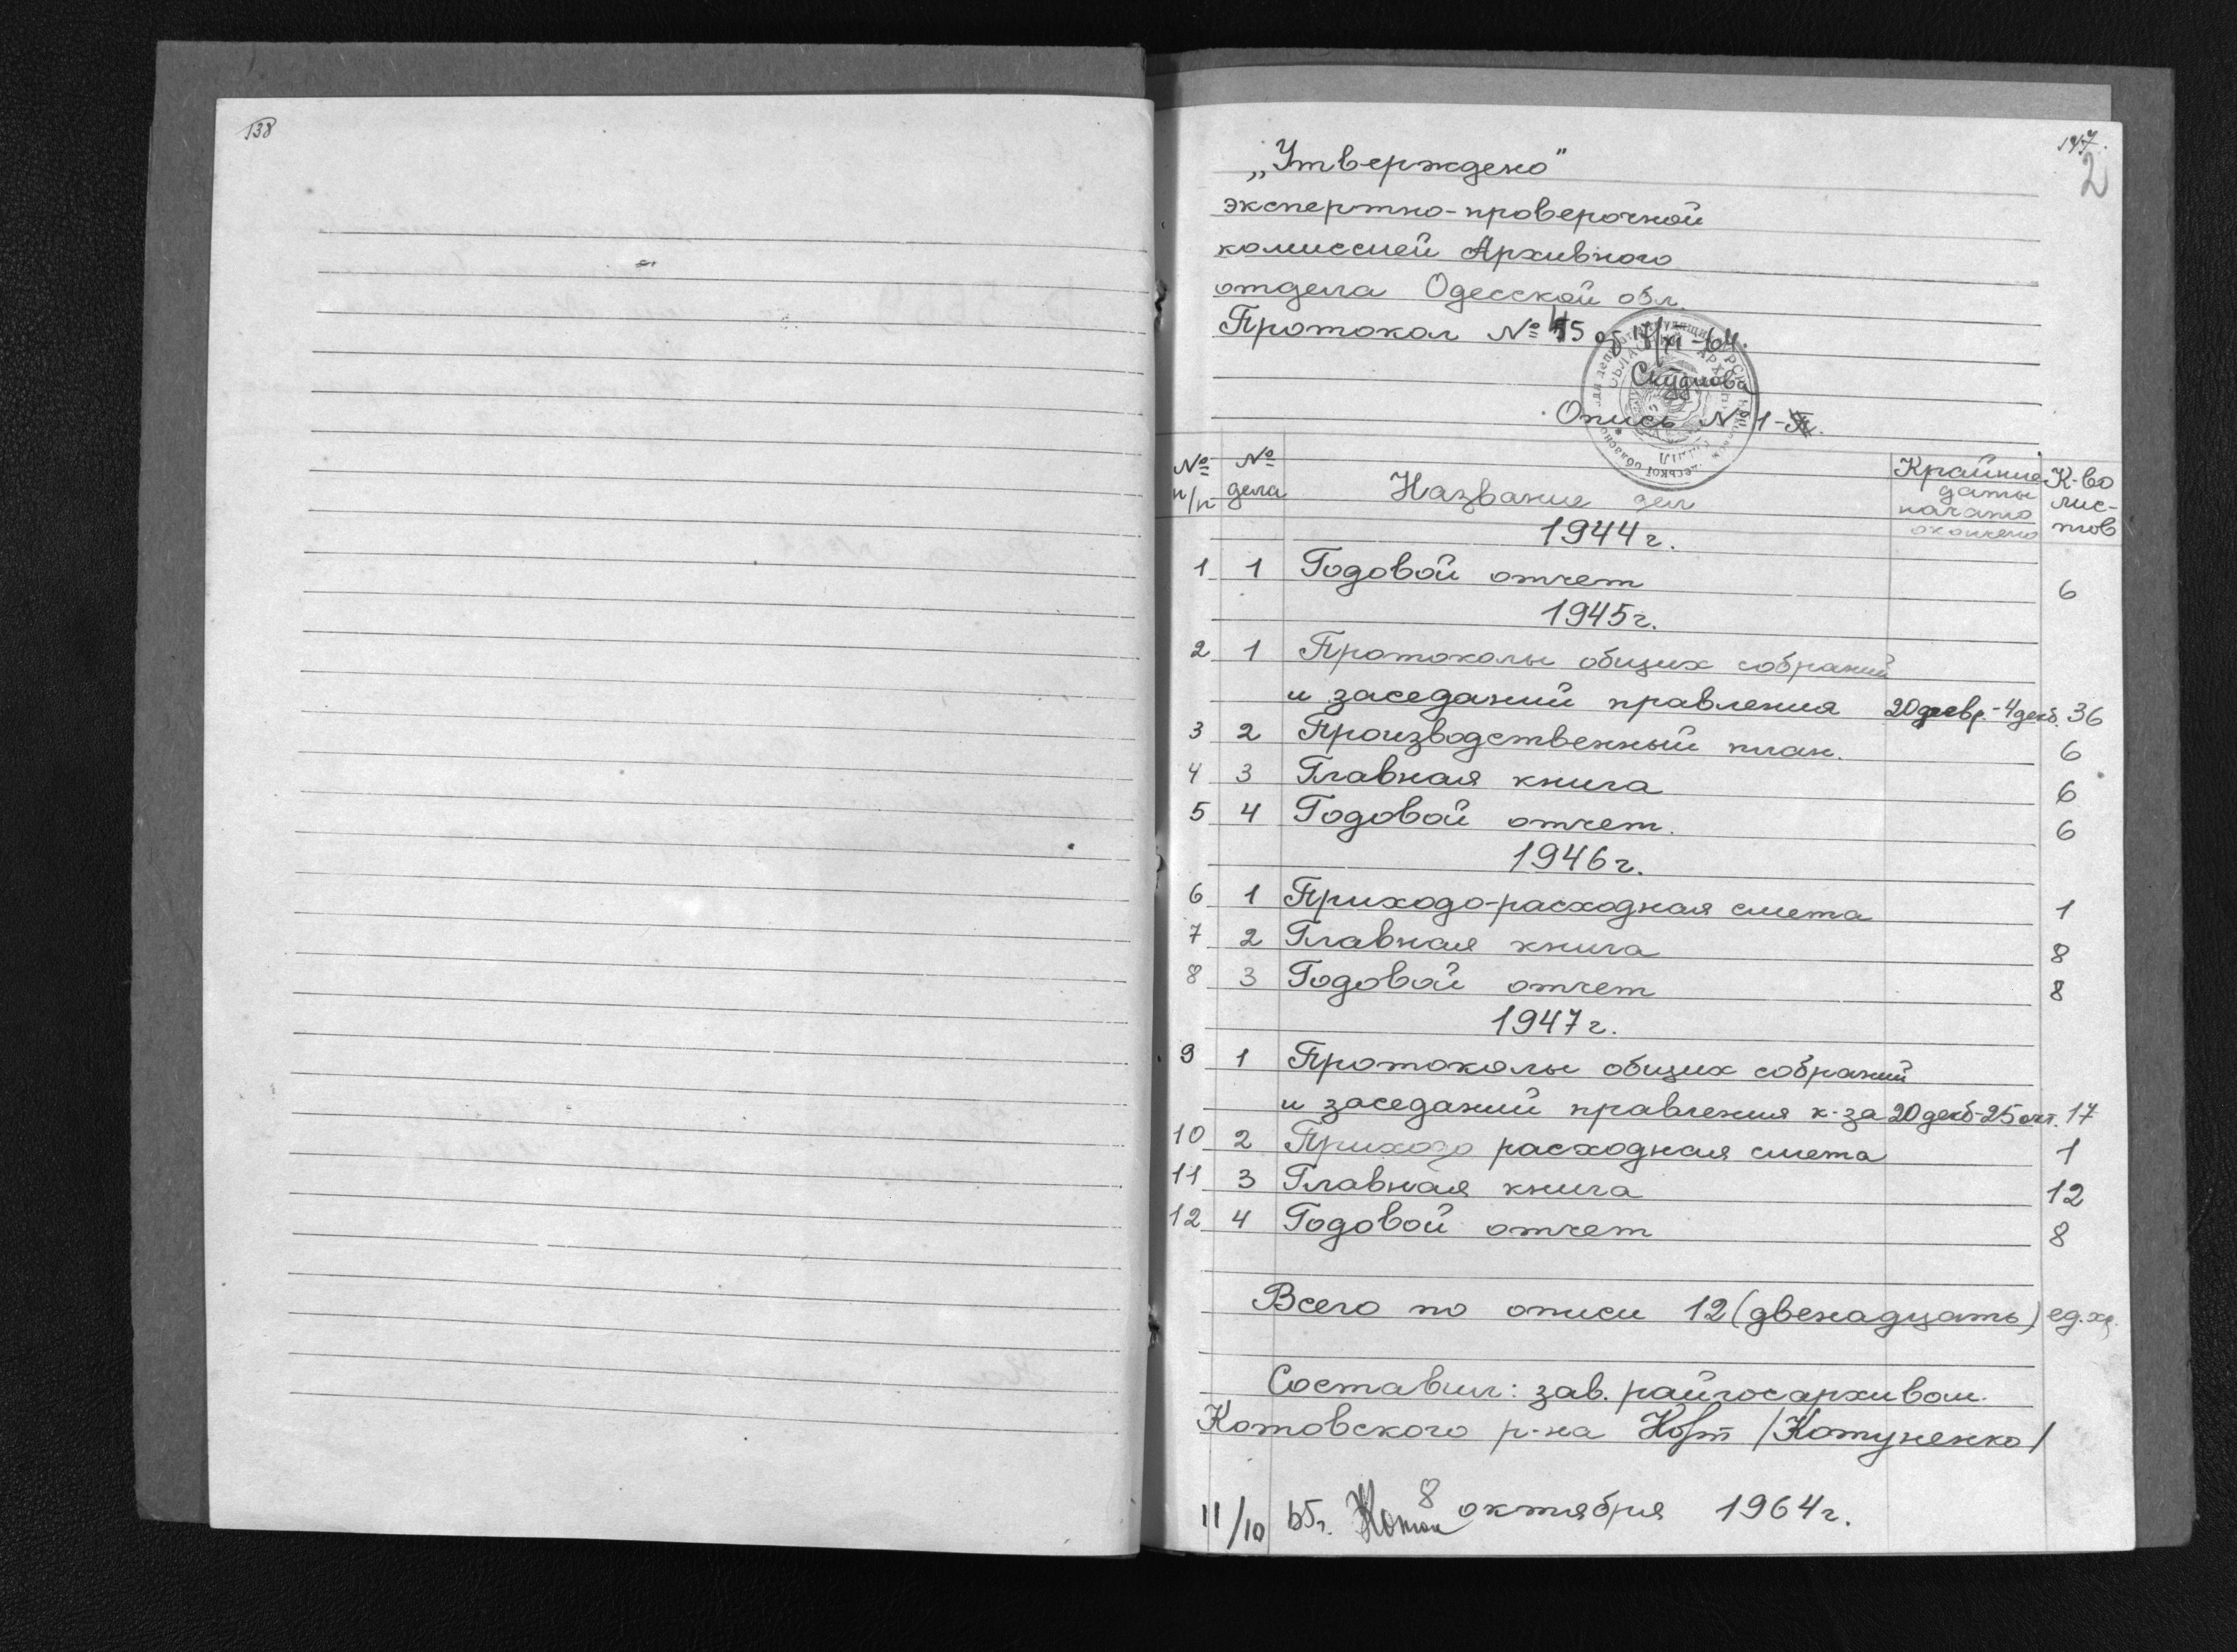 138
147.
2
„Утверждено"
экспертно-проверочной
комиссией Архивного
отдела Одесской обл.
Протокол № 45 от 17/XI-64.
Скуднова
Опись № 1-
№ п/п № дела Название дел Крайние даты начато окончено К-во лис-тов
1944 г.
1 1 Годовой отчет 6
1945 г.
2 1 Протоколы общих собраний
и заседаний правления 20 февр.-4 дек. 36
3 2 Производственный план. 6
4 3 Главная книга 6
5 4 Годовой отчет. 6
1946 г.
6 1 Приходо-расходная смета 1
7 2 Главная книга 8
8 3 Годовой отчет 8
1947 г.
9 1 Протоколы общих собраний
и заседаний правления к-за 20 декб-25 окт. 17
10 2 Приходо расходная смета 1
11 3 Главная книга 12
12 4 Годовой отчет 8
Всего по описи 12 (двенадцать) ед.хр.
Составил: зав. райгосархивом
Котовского р-на /Котуненко/
8 октября 1964 г.
11/10 65г.